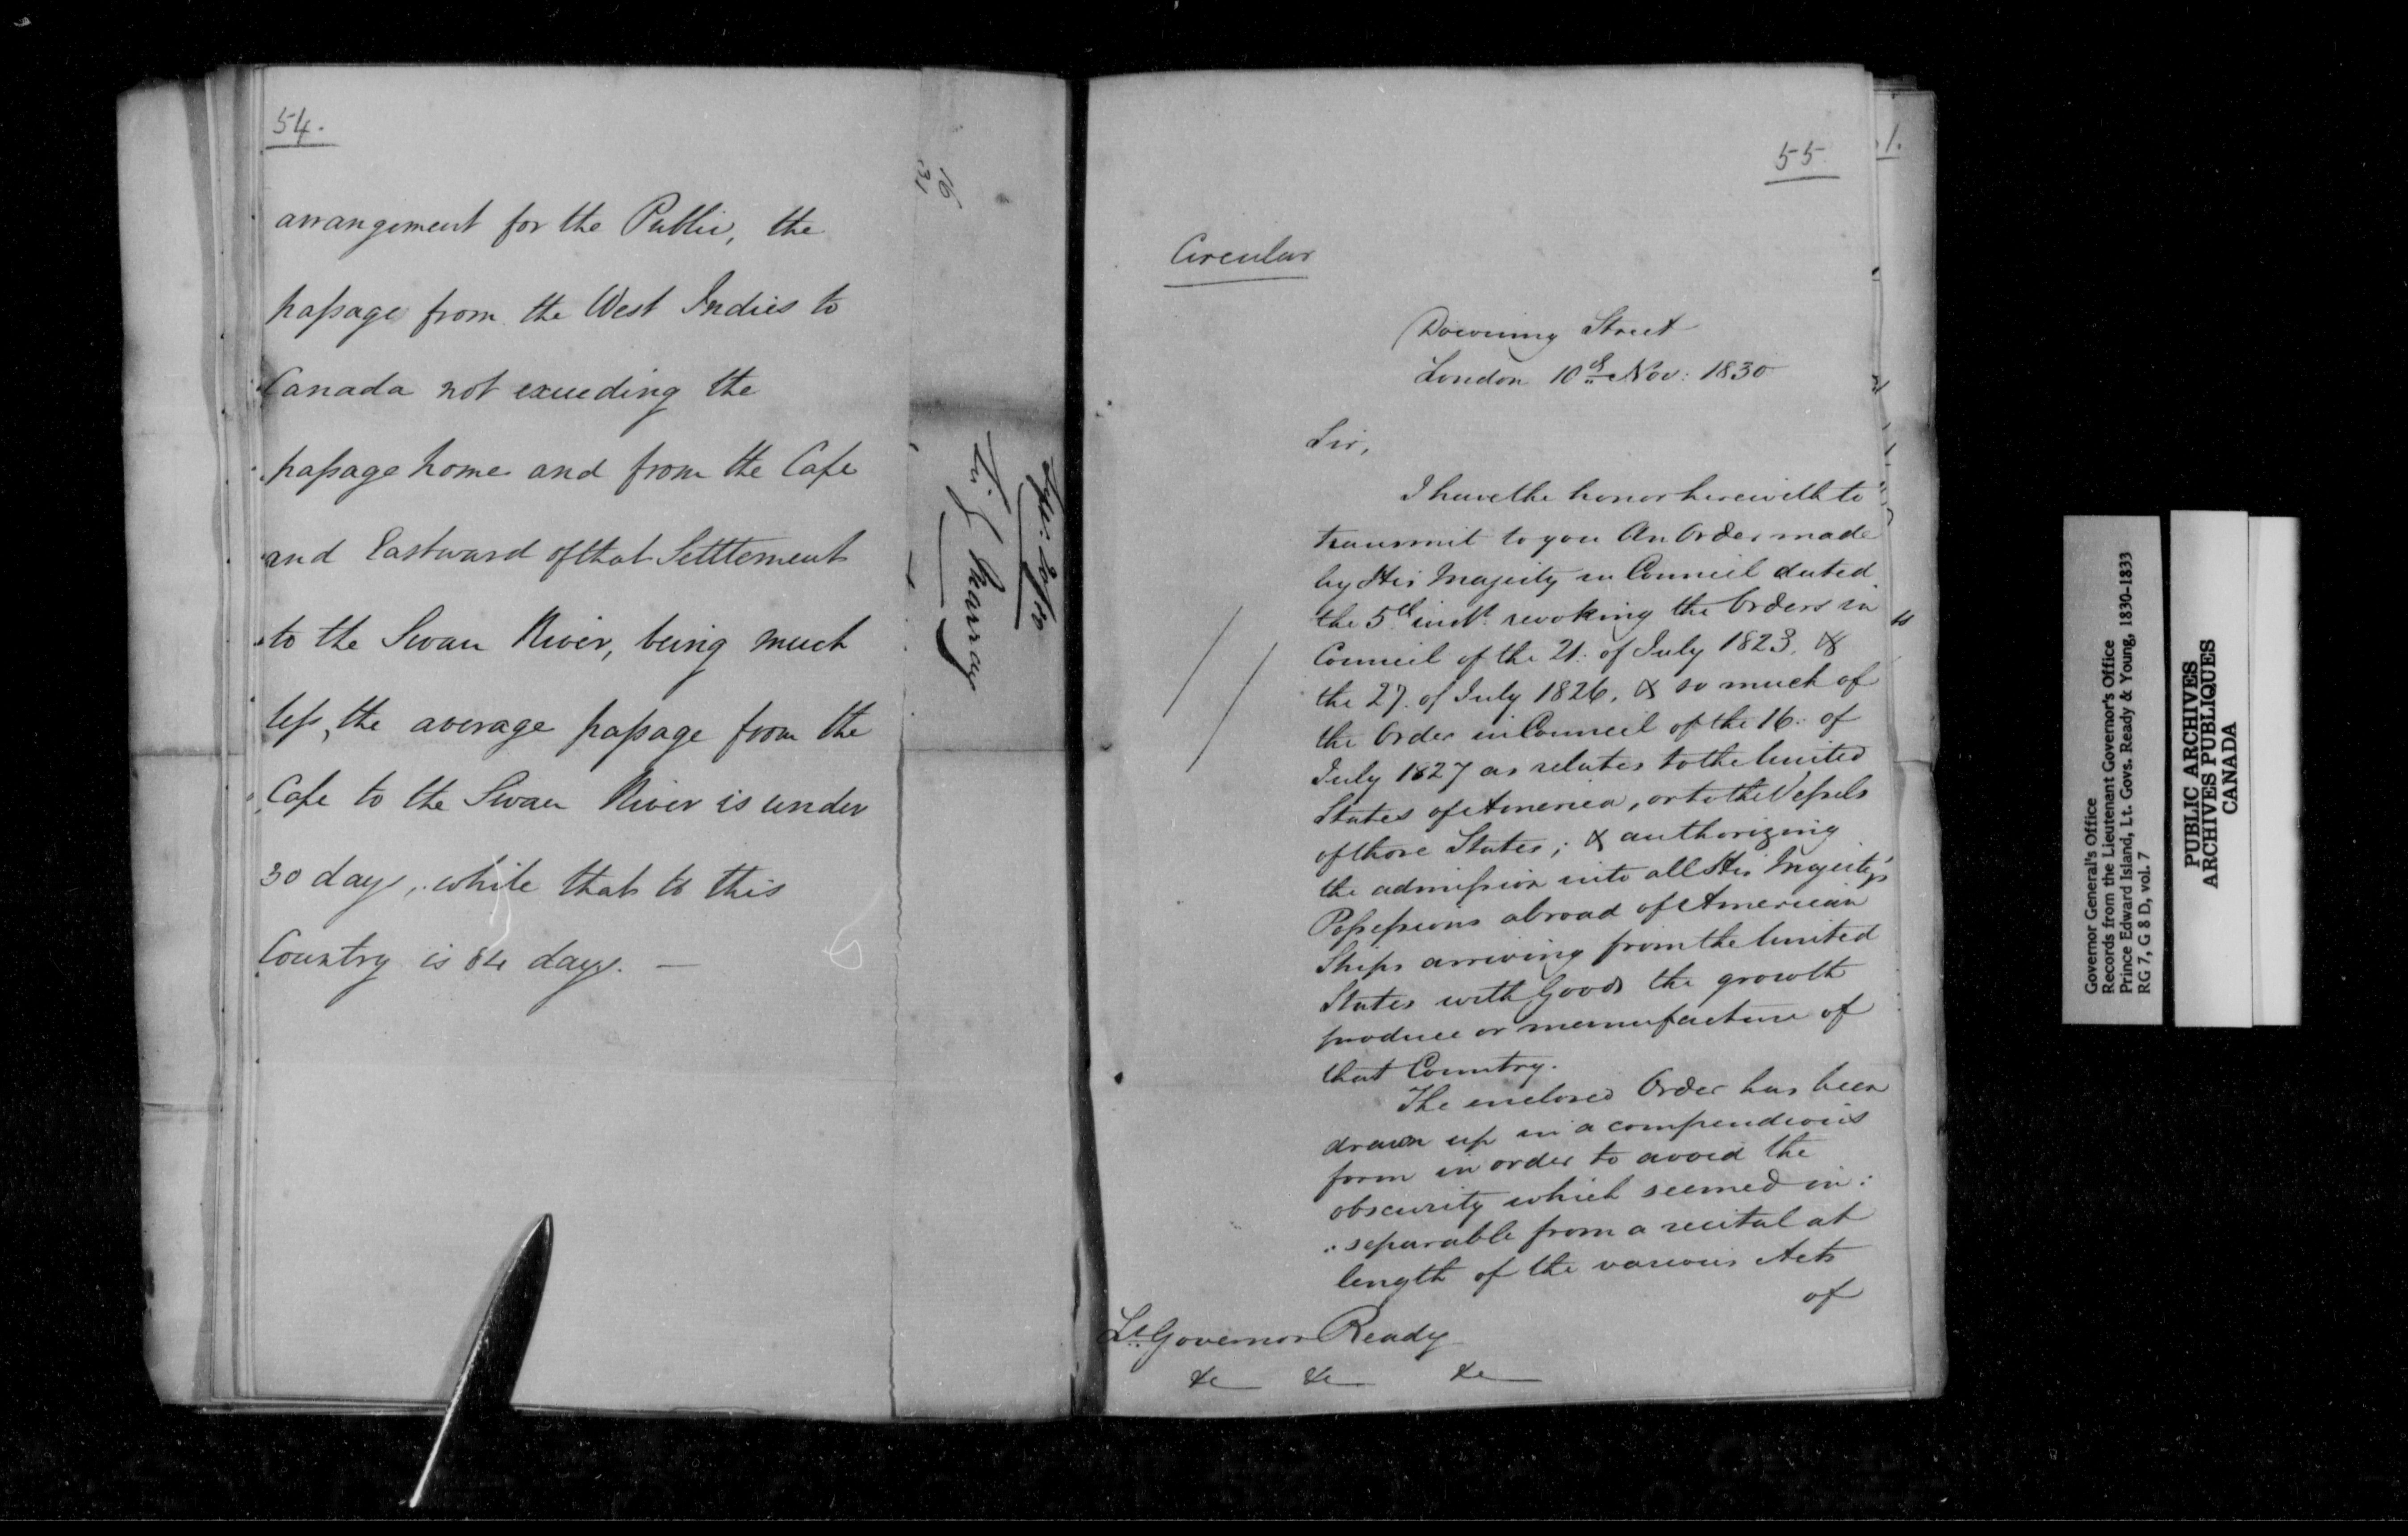 54.
arrangement for the Public, the
passage from the West Indies to
Canada not exceeding the
passage home and from the Cape
and Eastward of that Settlement
to the Swan River, being much
less, the average passage from the
Cape to the Swan River is under
30 days, while that to this
Country is 84 days. —
16
31
Sir G Murray
55
Circular
Downing Street
London 10th Nov: 1830
Sir,
I have the honor herewith to
transmit to you An Order made
by His Majesty in Council dated
the 5th inst. revoking the Orders in
Council of the 21. of July 1823. &
the 27. of July 1826. & so much of
the Order in Council of the 16. of
July 1827 as relates to the United
States of America, or to the Vessels
of those States; & authorizing
the admission into all His Majesty's
Possessions abroad of American
Ships arriving from the United
States with Goods the growth
produce or mannufacture of
that Country.
The enclosed Order has been
drawn up in a compendious
form in order to avoid the
obscurity which seemed in:
:separable from a recital at
length of the various Acts
of
Lt. Governor Ready
&c &c &c
1.
Governor General's Office
Records from the Lieutenant Governor's Office
Prince Edward Island, Lt. Govs. Ready & Young, 1830-1833
RG 7, G 8 D, vol. 7
PUBLIC ARCHIVES
ARCHIVES PUBLIQUES
CANADA